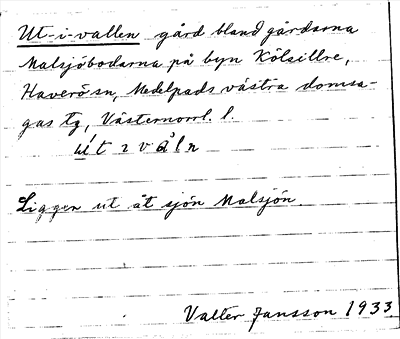 Ut-i-vallen gård bland gårdarna
Malsjöbodarna på byn Kölsillre,
Haverö sn, Medelpads västra domsa-
gas tg, Västernorrl. l.
út ɪ våln
Ligger ut åt sjön Malsjön
Valter Jansson 1933